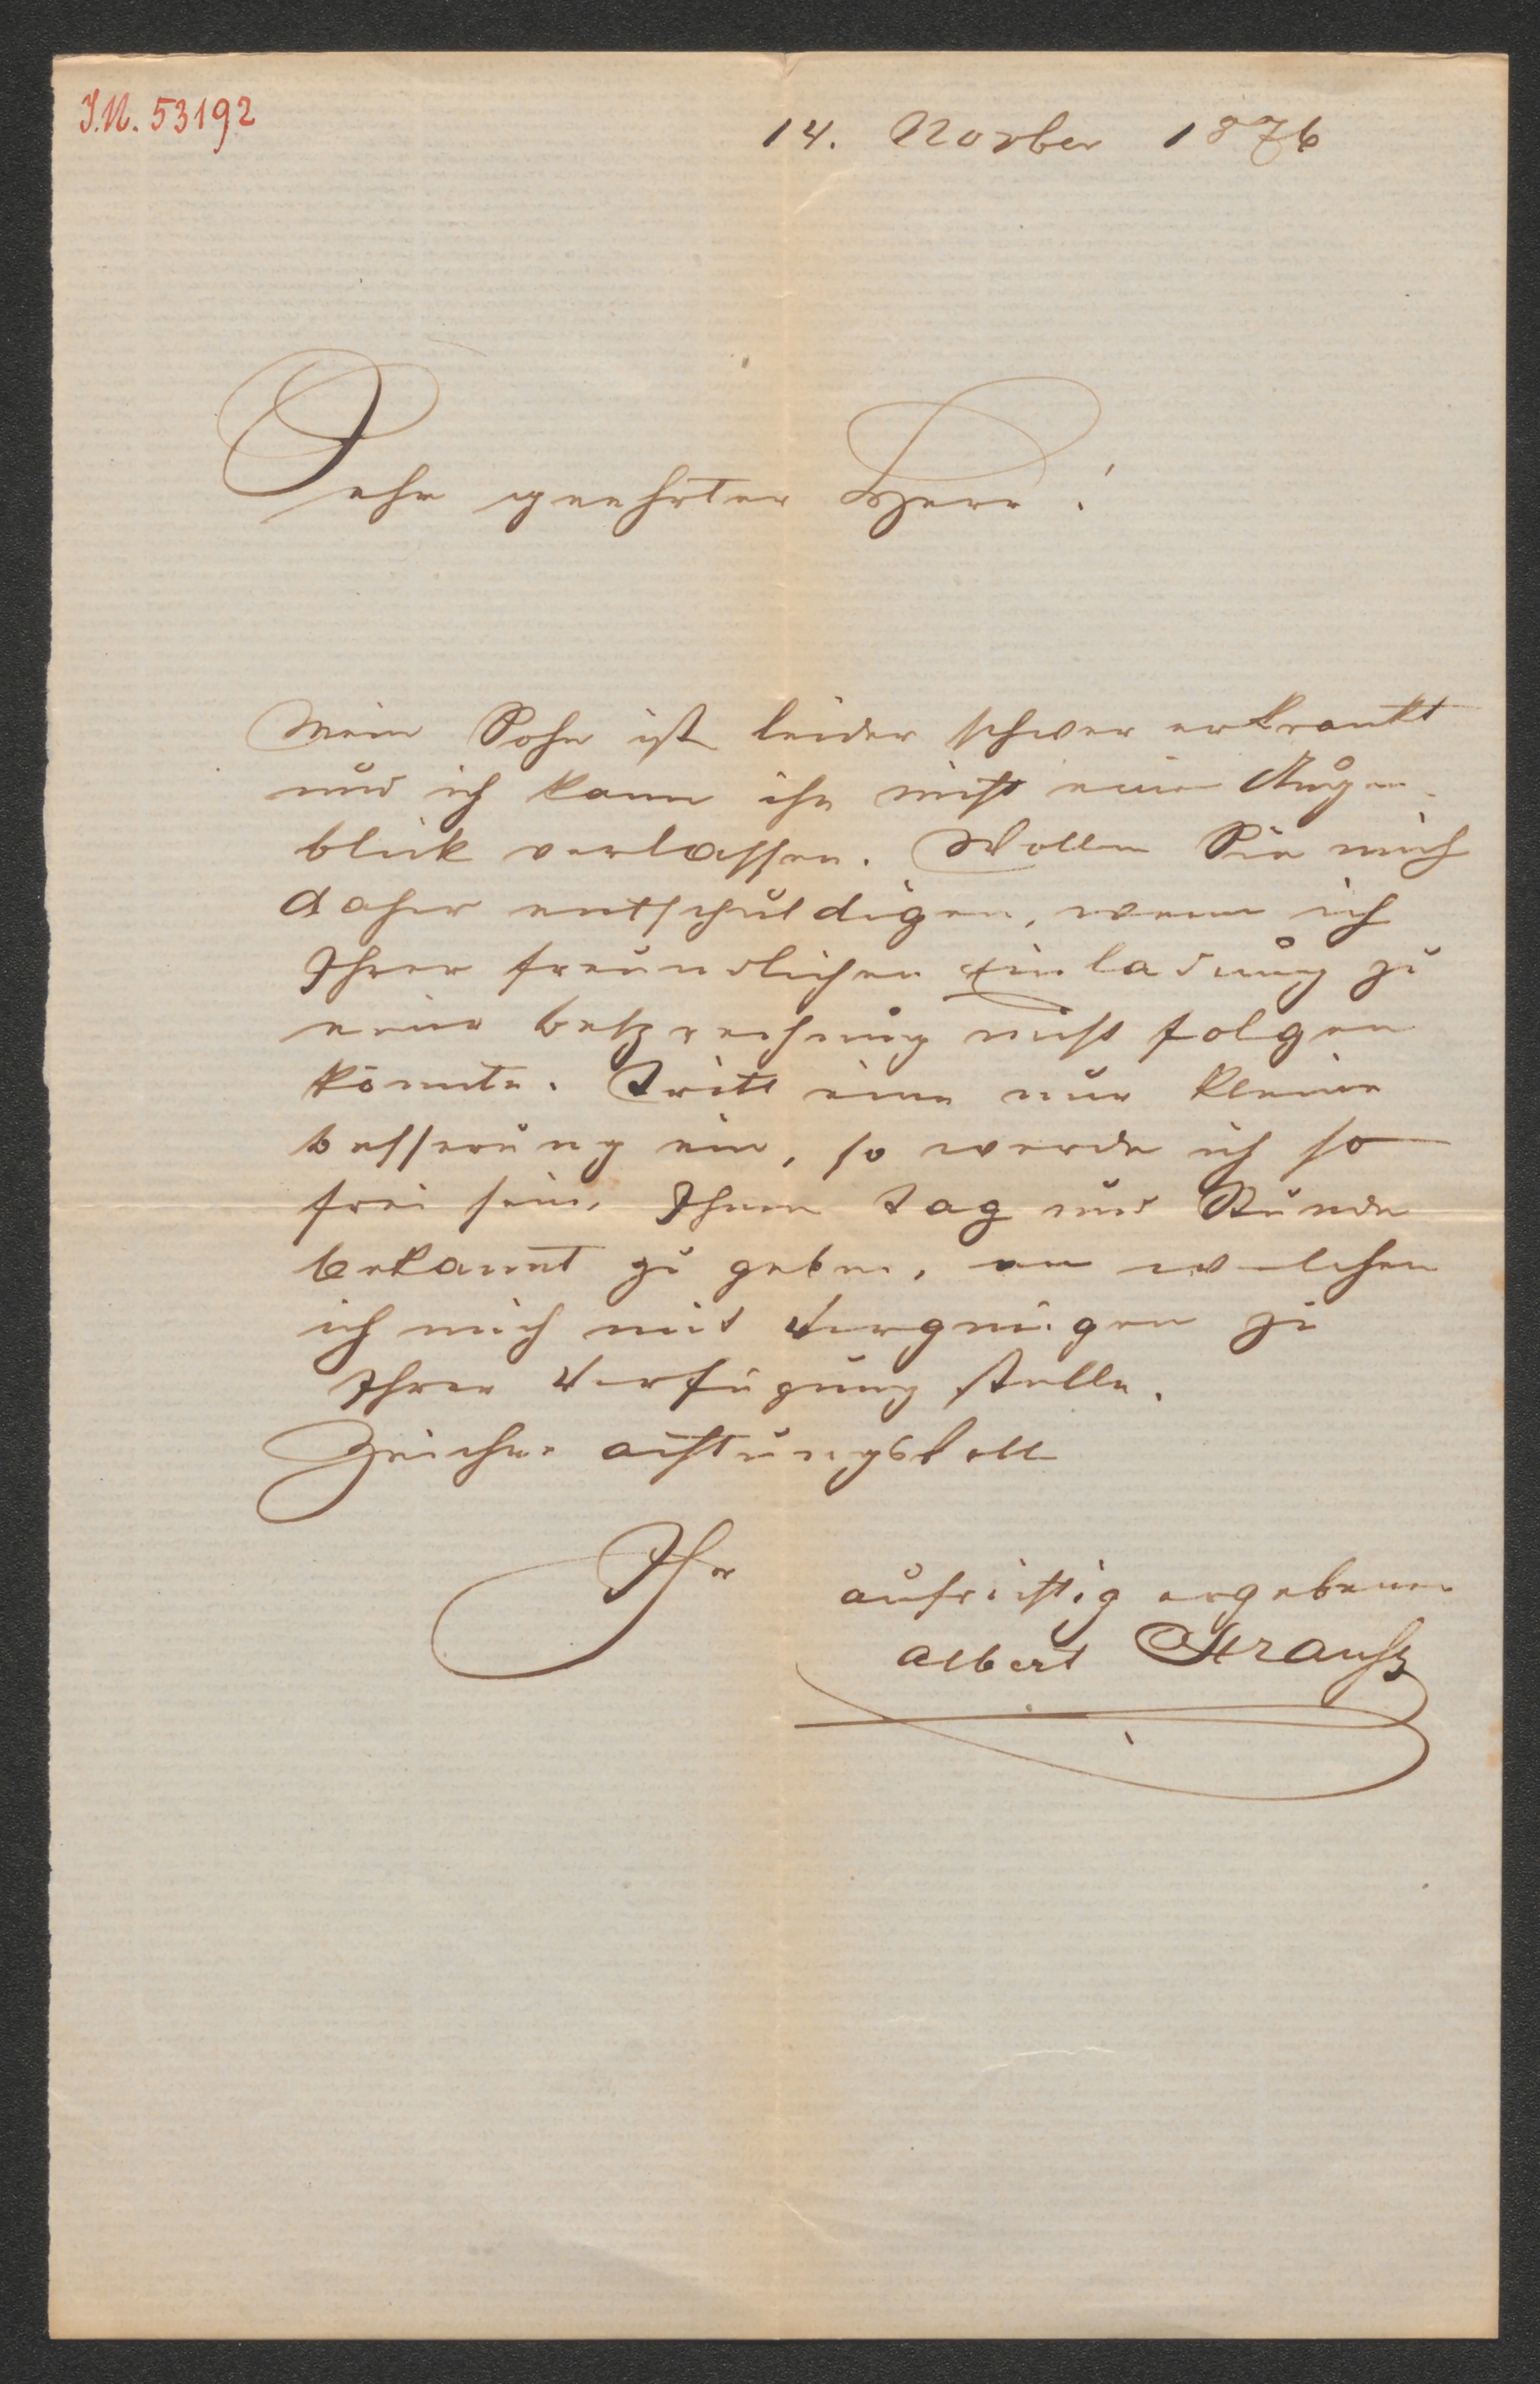 J.N. 53192
14. Novber 1876
Sehr geehrter Herr!
Mein Sohn ist leider schwer erkrankt
und ich kann ihn nicht einen Augen-
blick verlassen. Wollen Sie mich
daher entschuldigen, wenn ich
Ihrer freundlichen Einladung zu
einer besprechung nicht folgen
könnte. Tritt eine nur kleine
besserung ein, so werde ich so
frei sein, Ihnen Tag und Stunde
bekannt zu geben, an welchen
ich mich mit Vergnügen zu
Ihrer Verfügung stelle.
Zeichne achtungsvoll
Ihr aufrichtig ergebener
Albert Strauß